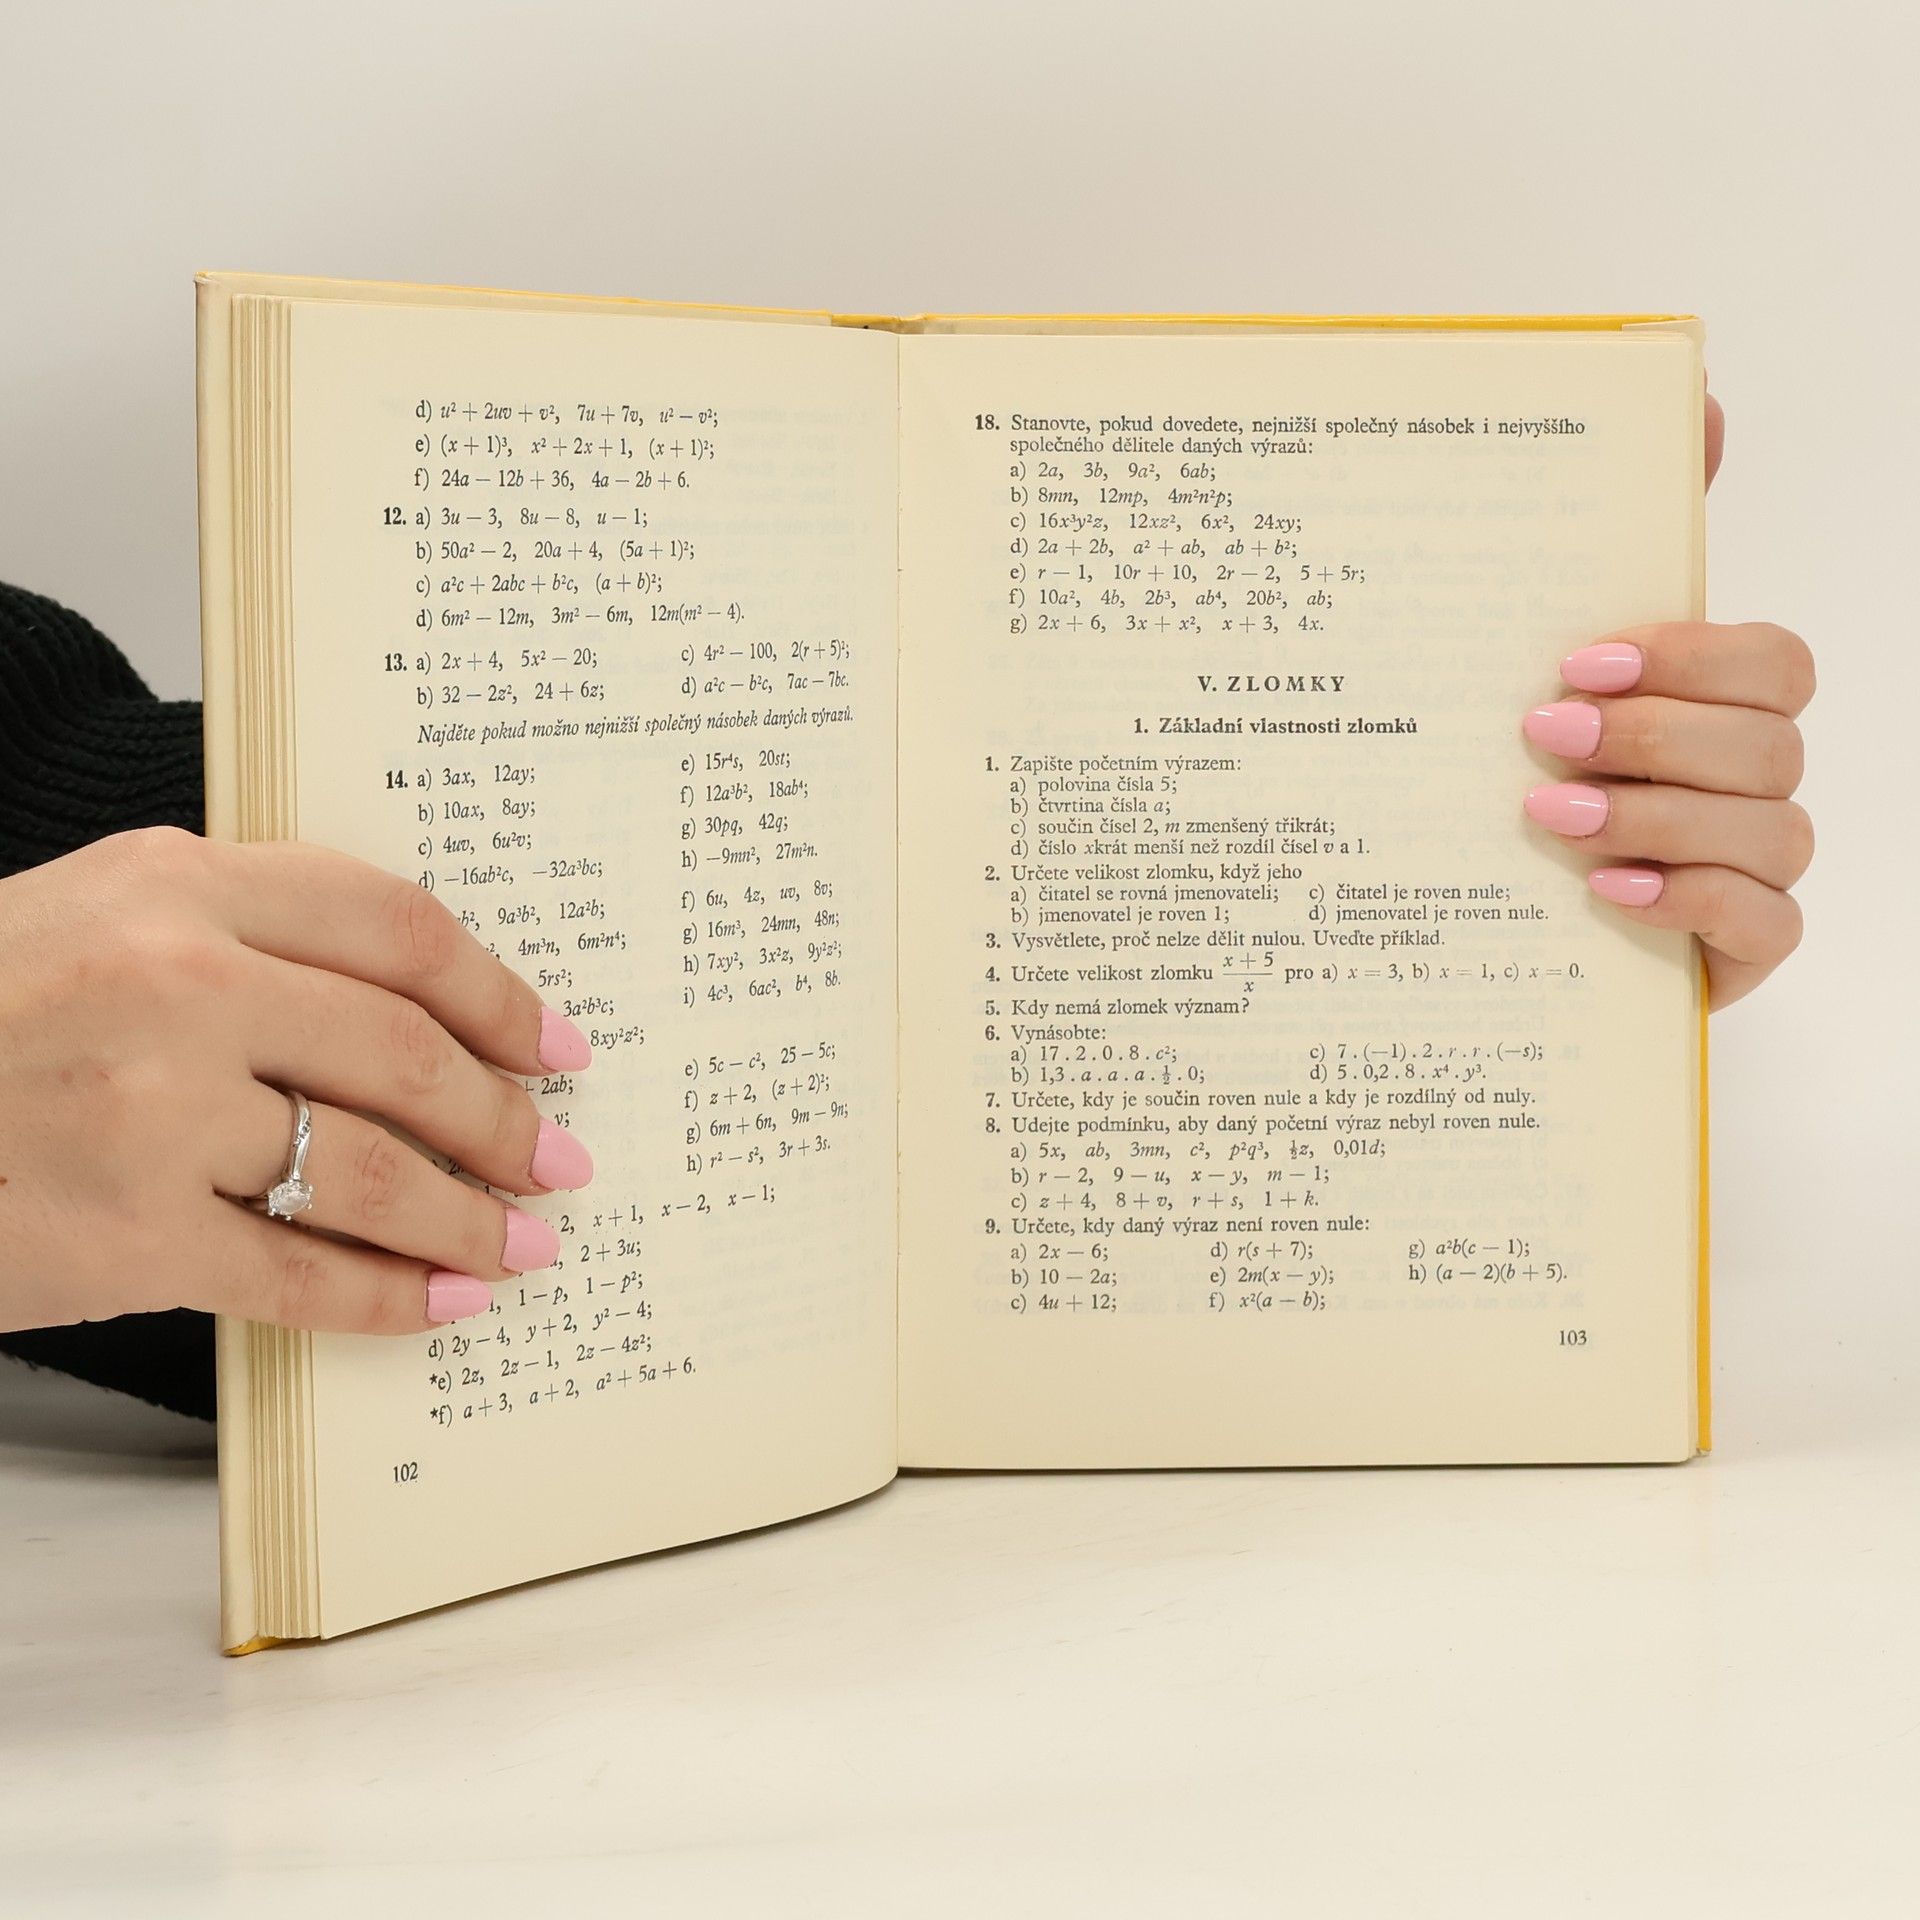 d) u² + 2uv + v², 7u + 7v, u² − v²;
e) (x + 1)³, x² + 2x + 1, (x + 1)²;
f) 24a − 12b + 36, 4a − 2b + 6.
12. a) 3u − 3, 8u − 8, u − 1;
b) 50a² − 2, 20a + 4, (5a + 1)²;
c) a²c + 2abc + b²c, (a + b)²;
d) 6m² − 12m, 3m² − 6m, 12m(m² − 4).
13. a) 2x + 4, 5x² − 20; c) 4r² − 100, 2(r + 5)²;
b) 32 − 2z², 24 + 6z; d) a²c − b²c, 7ac − 7bc.
Najděte pokud možno nejnižší společný násobek daných výrazů.
14. a) 3ax, 12ay; e) 15r⁴s, 20st;
b) 10ax, 8ay; f) 12a³b², 18ab⁴;
c) 4uv, 6u²v; g) 30pq, 42q;
d) −16ab²c, −32a³bc; h) −9mn², 27m²n.
9a³b², 12a²b; f) 6u, 4z, uv, 8v;
4m³n, 6m²n⁴; g) 16m³, 24mn, 48n;
5rs²; h) 7xy², 3x²z, 9y²z²;
3a²b³c; i) 4c³, 6ac², b⁴, 8b.
8xy²z²;
e) 5c − c², 25 − 5c;
+ 2ab; f) z + 2, (z + 2)²;
g) 6m + 6n, 9m − 9n;
h) r² − s², 3r + 3s.
x + 1, x − 2, x − 1;
2 + 3u;
1 − p, 1 − p²;
d) 2y − 4, y + 2, y² − 4;
*e) 2z, 2z − 1, 2z − 4z²;
*f) a + 3, a + 2, a² + 5a + 6.
102
18. Stanovte, pokud dovedete, nejnižší společný násobek i nejvyššího
společného dělitele daných výrazů:
a) 2a, 3b, 9a², 6ab;
b) 8mn, 12mp, 4m²n²p;
c) 16x³y²z, 12xz², 6x², 24xy;
d) 2a + 2b, a² + ab, ab + b²;
e) r − 1, 10r + 10, 2r − 2, 5 + 5r;
f) 10a², 4b, 2b³, ab⁴, 20b², ab;
g) 2x + 6, 3x + x², x + 3, 4x.
V. ZLOMKY
1. Základní vlastnosti zlomků
1. Zapište početním výrazem:
a) polovina čísla 5;
b) čtvrtina čísla a;
c) součin čísel 2, m zmenšený třikrát;
d) číslo xkrát menší než rozdíl čísel v a 1.
2. Určete velikost zlomku, když jeho
a) čitatel se rovná jmenovateli; c) čitatel je roven nule;
b) jmenovatel je roven 1; d) jmenovatel je roven nule.
3. Vysvětlete, proč nelze dělit nulou. Uveďte příklad.
4. Určete velikost zlomku (x + 5)/x pro a) x = 3, b) x = 1, c) x = 0.
5. Kdy nemá zlomek význam?
6. Vynásobte:
a) 17 . 2 . 0 . 8 . c²; c) 7 . (−1) . 2 . r . r . (−s);
b) 1,3 . a . a . a . ½ . 0; d) 5 . 0,2 . 8 . x⁴ . y³.
7. Určete, kdy je součin roven nule a kdy je rozdílný od nuly.
8. Udejte podmínku, aby daný početní výraz nebyl roven nule.
a) 5x, ab, 3mn, c², p²q³, ½z, 0,01d;
b) r − 2, 9 − u, x − y, m − 1;
c) z + 4, 8 + v, r + s, 1 + k.
9. Určete, kdy daný výraz není roven nule:
a) 2x − 6; d) r(s + 7); g) a²b(c − 1);
b) 10 − 2a; e) 2m(x − y); h) (a − 2)(b + 5).
c) 4u + 12; f) x²(a − b);
103